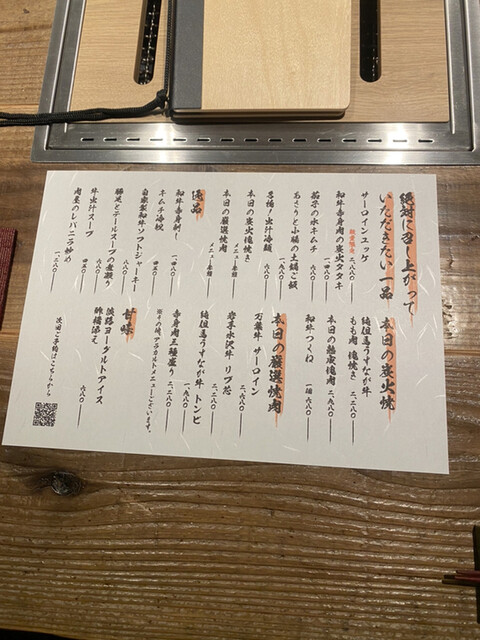 絶対に召し上がって
いただきたい一品
サーロインユッケ 二、八八〇
数量限定
和牛赤身肉の炭火タタキ
茄子の水キムチ 六八〇
あさりと小鍋の土鍋ご飯
〆鍋!出汁冷麺
本日の炭火塊焼き メニュー参照
本日の厳選焼肉 メニュー参照
逸品
和牛赤身刺し 一、四八〇
キムチ冷奴 四五〇
自家製和牛ソフトジャーキー
豚足とテールスープの煮凝り 六八〇
牛出汁スープ 四五〇
肉屋のレバニラ炒め 一、二八〇
本日の炭火焼
純但馬うすなが牛
もも肉 塊焼き 二、二八〇
本日の熟成塊肉 二、八八〇
和牛つくね 一個 六八〇
本日の厳選焼肉
万葉牛 サーロイン 二、六八〇
岩手水沢牛 リブ芯 二、六八〇
純但馬うすなが牛 トンビ 一、九八〇
赤身肉三種盛り 二、二八〇
※その他アラカルトメニューございます。
甘味
淡路ヨーグルトアイス
酢橘添え 六八〇
次回ご予約はこちらから